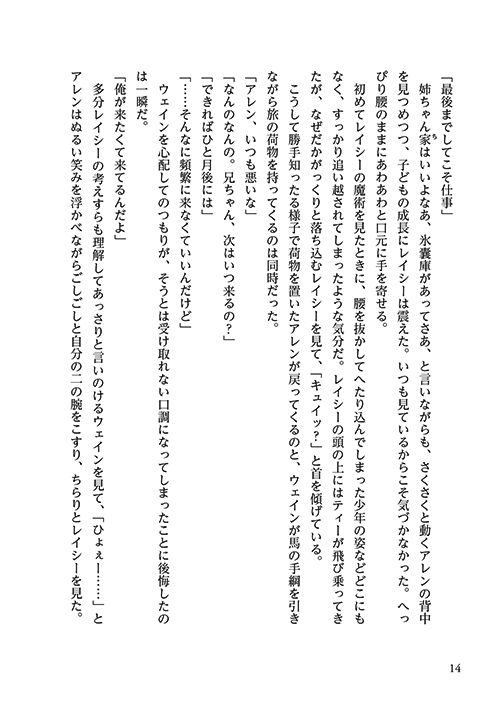 「最後までしてこそ仕事」
　姉ちゃん家はいいよなあ、氷嚢庫があってさあ、と言いながらも、さくさくと動くアレンの背中
を見つめつつ、子どもの成長にレイシーは震えた。いつも見ているからこそ気づかなかった。へっ
ぴり腰のままにあわあわと口元に手を寄せる。
　初めてレイシーの魔術を見たときに、腰を抜かしてへたり込んでしまった少年の姿などどこにも
なく、すっかり追い越されてしまったような気分だ。レイシーの頭の上にはティーが飛び乗ってき
たが、なぜだかがっくりと落ち込むレイシーを見て、「キュイッ？」と首を傾げている。
　こうして勝手知ったる様子で荷物を置いたアレンが戻ってくるのと、ウェインが馬の手綱を引き
ながら旅の荷物を持ってくるのは同時だった。
「アレン、いつも悪いな」
「なんのなんの。兄ちゃん、次はいつ来るの？」
「できればひと月後には」
「……そんなに頻繁に来なくていいんだけど」
　ウェインを心配してのつもりが、そうとは受け取れない口調になってしまったことに後悔したの
は一瞬だ。
「俺が来たくて来てるんだよ」
　多分レイシーの考えすらも理解してあっさりと言いのけるウェインを見て、「ひょぇー……」と
アレンはぬるい笑みを浮かべながらごしごしと自分の二の腕をこすり、ちらりとレイシーを見た。
14